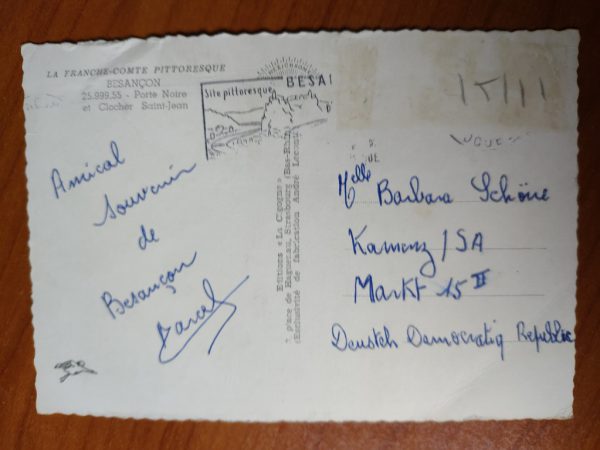 LA FRANCHE-COMTE PITTORESQUE
BESANÇON
25.999.55 - Porte Noire
et Clocher Saint-Jean
Site pittoresque
BESA
15/11
Amical
Souvenir
de
Besançon
Pascal
Editions « La Cigogne »
7, place de Haguenau, Strasbourg (Bas-Rhin)
(Exclusivité de fabrication André Leconte)
Melle Barbara Schöne
Kamenz / SA
Markt 15 II
Deustch Democratiq Republic